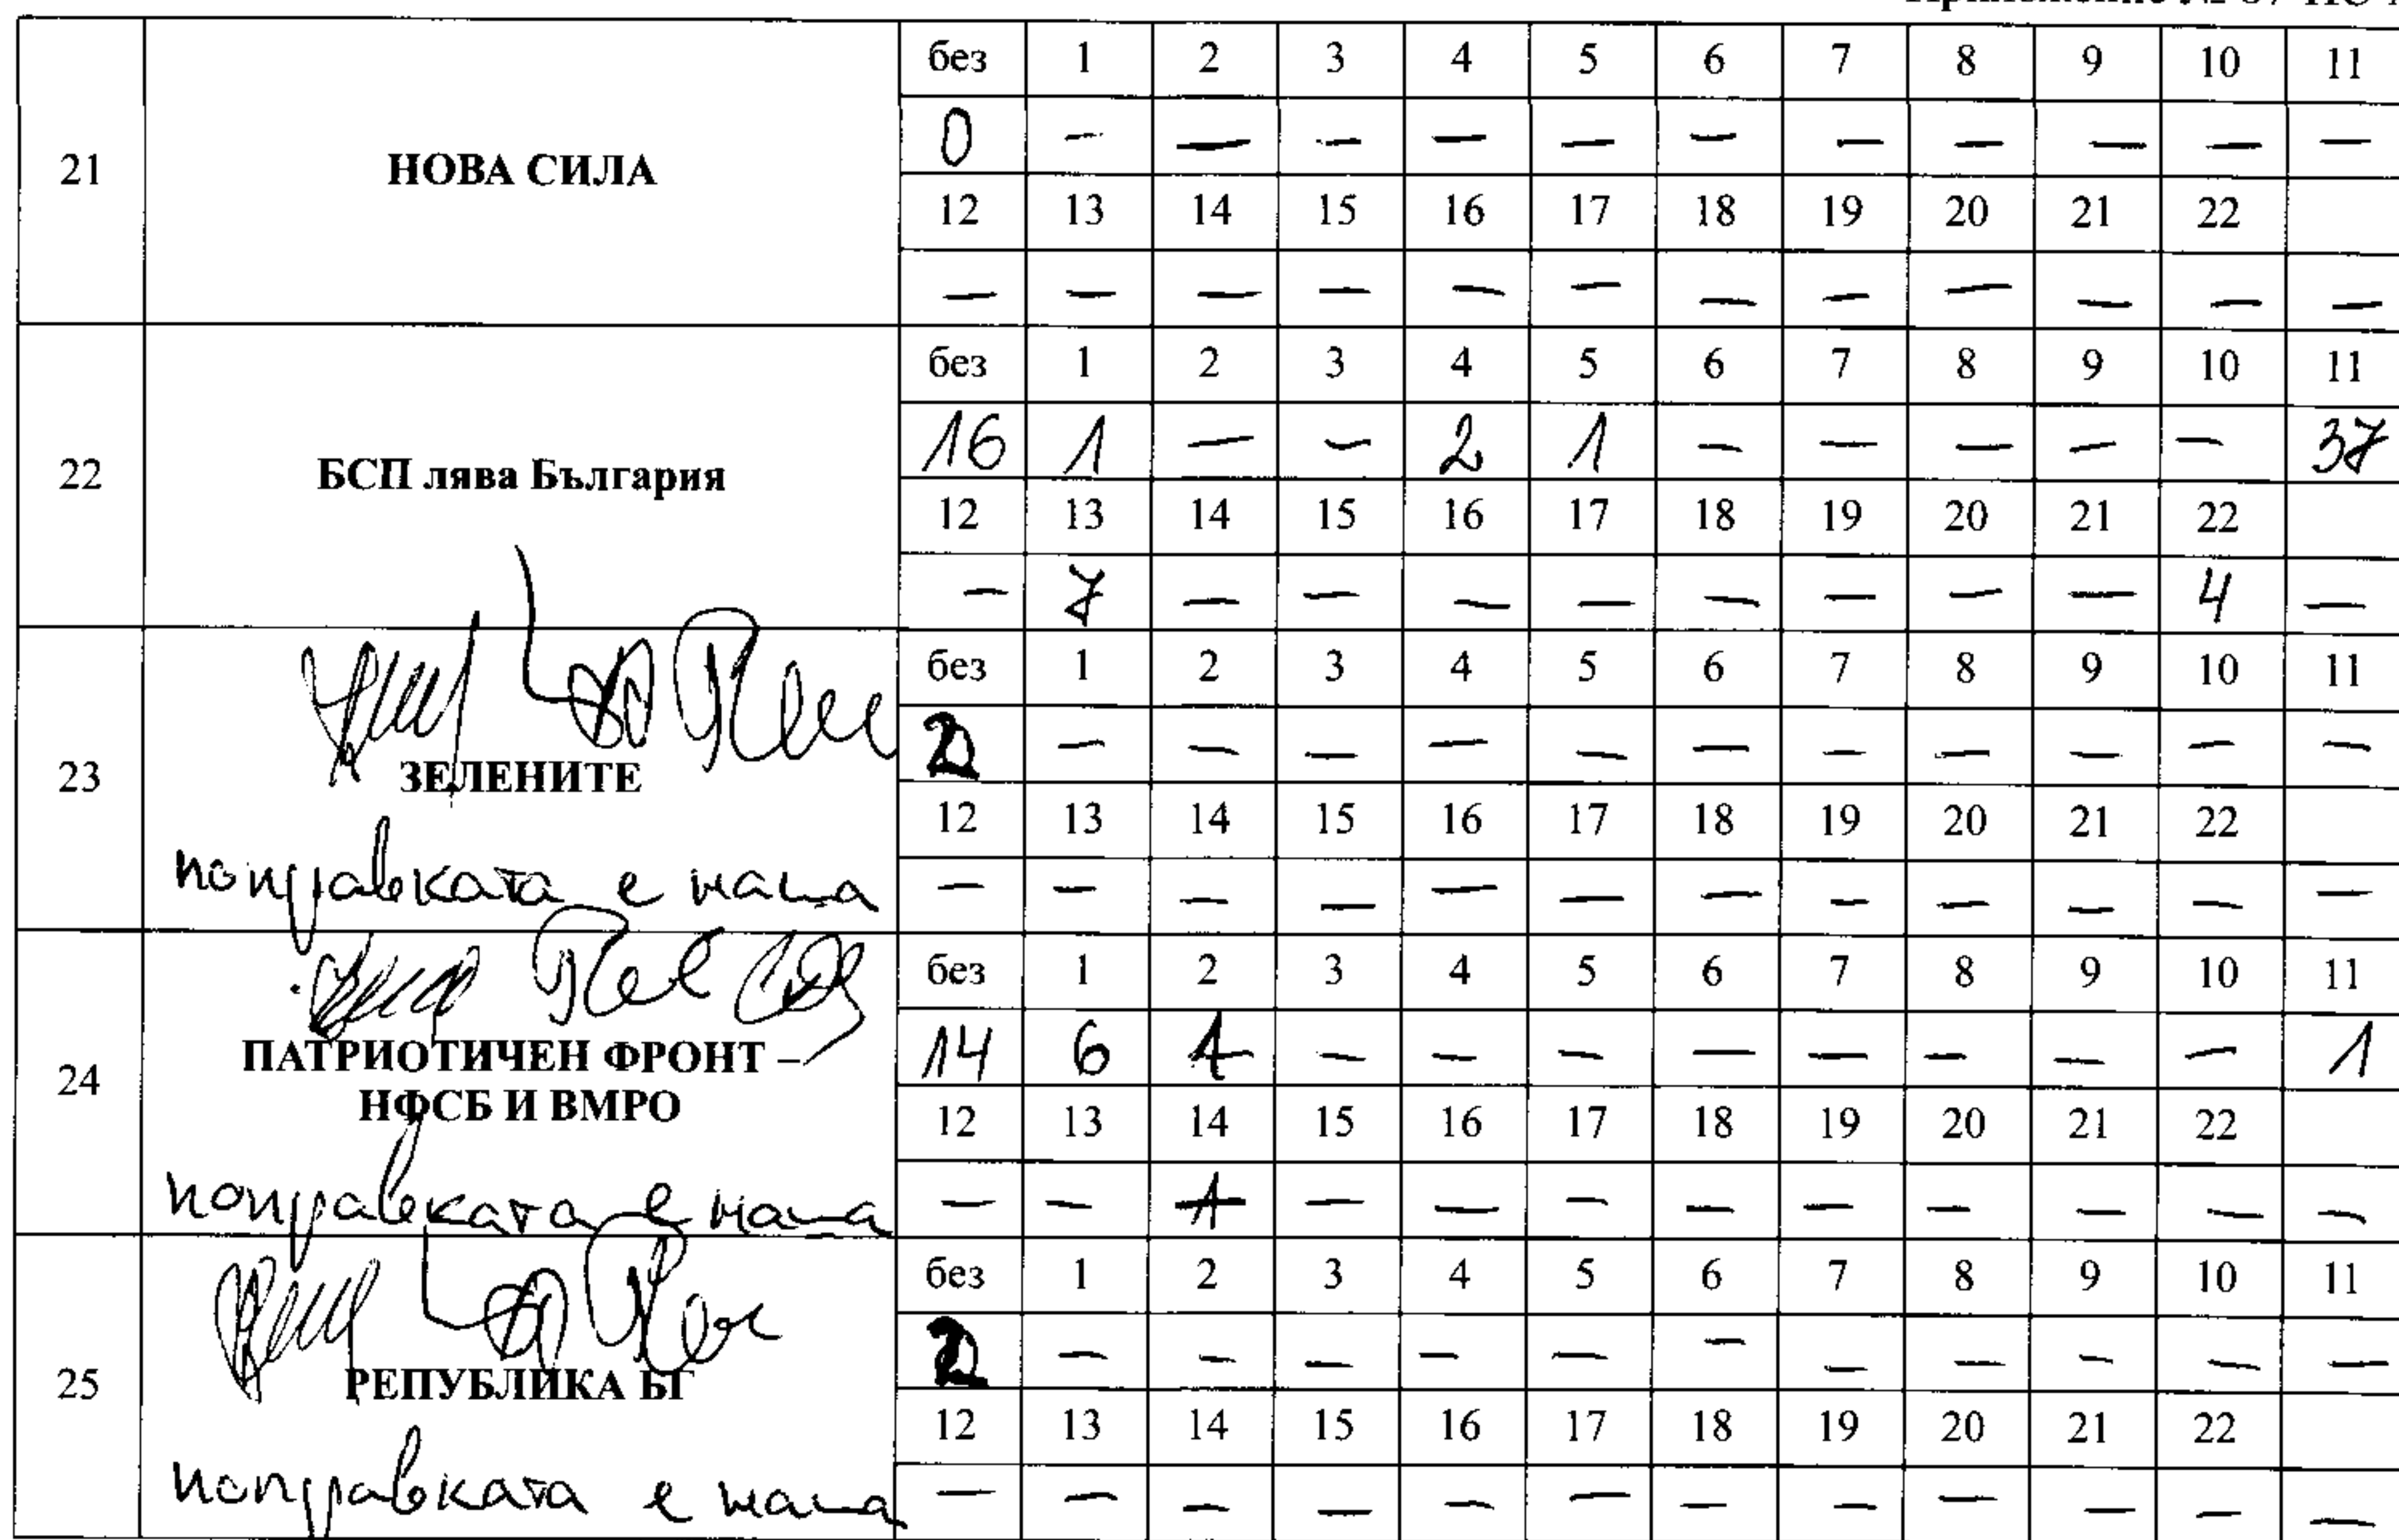 21 НОВА СИЛА
без 1 2 3 4 5 6 7 8 9 10 11
0 - - - - - - - - - - -
12 13 14 15 16 17 18 19 20 21 22
- - - - - - - - - - - -
22 БСП лява България
без 1 2 3 4 5 6 7 8 9 10 11
16 1 - - 2 1 - - - - - 37
12 13 14 15 16 17 18 19 20 21 22
- 7 - - - - - - - - 4 -
23 ЗЕЛЕНИТЕ
поправката е наша
без 1 2 3 4 5 6 7 8 9 10 11
2 - - - - - - - - - - -
12 13 14 15 16 17 18 19 20 21 22
- - - - - - - - - - - -
24 ПАТРИОТИЧЕН ФРОНТ –
НФСБ И ВМРО
поправката е наша
без 1 2 3 4 5 6 7 8 9 10 11
14 6 1 - - - - - - - - 1
12 13 14 15 16 17 18 19 20 21 22
- - 1 - - - - - - - - -
25 РЕПУБЛИКА БГ
поправката е наша
без 1 2 3 4 5 6 7 8 9 10 11
2 - - - - - - - - - - -
12 13 14 15 16 17 18 19 20 21 22
- - - - - - - - - - - -